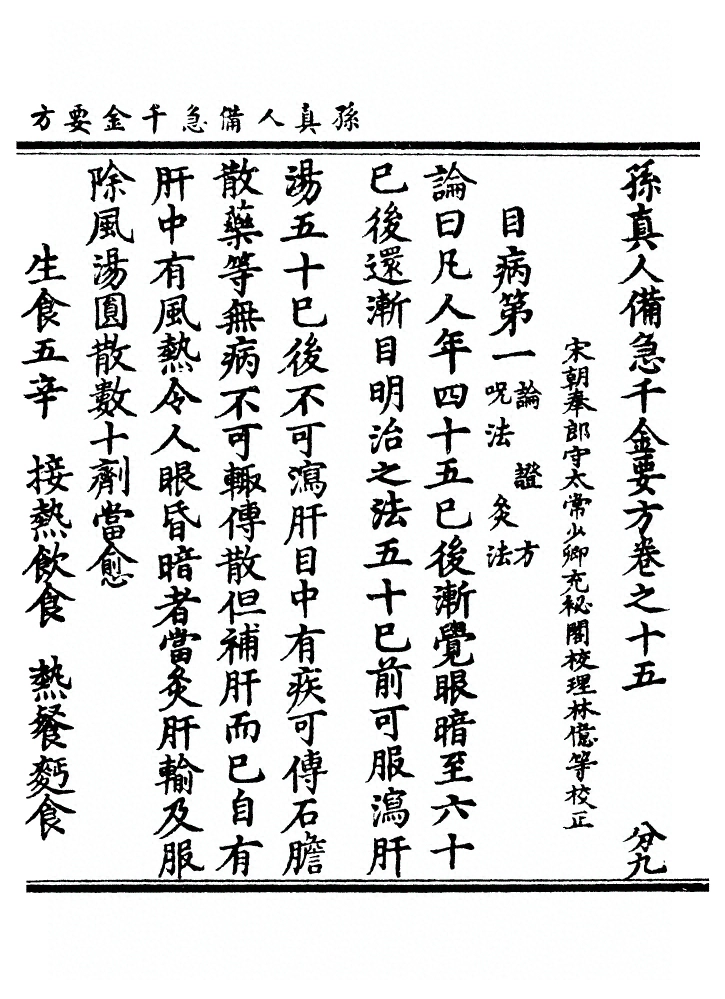 孫真人備急千金要方
孫真人備急千金要方卷之十五 分九
宋朝奉郎守太常少卿充祕閣校理林億等校正
目病第一 論 證 方
呪法 灸法
論曰凡人年四十五已後漸覺眼暗至六十
已後還漸目明治之法五十已前可服瀉肝
湯五十已後不可瀉肝目中有疾可傅石膽
散藥等無病不可輙傅散但補肝而已自有
肝中有風熱令人眼昏暗者當灸肝輸及服
除風湯圓散數十劑當愈
生食五辛 接熱飲食 熱餐麪食